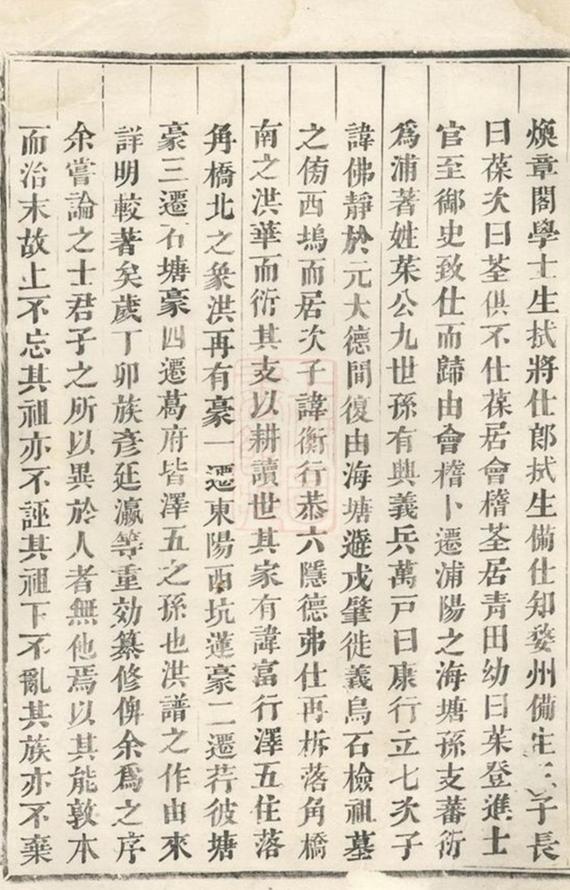 煥章閣學士生拭將仕郎拭生備仕知婺州備生三子長
曰葆次曰荃俱不仕葆居會稽荃居青田幼曰茱登進士
官至御史致仕而歸由會稽卜遷浦陽之海塘孫支蕃衍
爲浦著姓茱公九世孫有典義兵萬戸曰康行立七次子
諱佛靜於元大德間復由海塘遊戍肇徙義烏石檢祖墓
之傍西塢而居次子諱衡行恭六隱德弗仕再柝落角橋
南之洪華而衍其支以耕讀世其家有諱富行澤五住落
角橋北之象洪再有豪一遷東陽西坑蓮豪二遷荇彼塘
豪三遷石塘豪四遷葛府皆澤五之孫也洪譜之作由來
詳明較著矣歲丁卯族彥廷瀛等重効纂修俾余爲之序
余嘗論之士君子之所以異於人者無他焉以其能敦本
而治末故上不忘其祖亦不誣其祖下不亂其族亦不棄